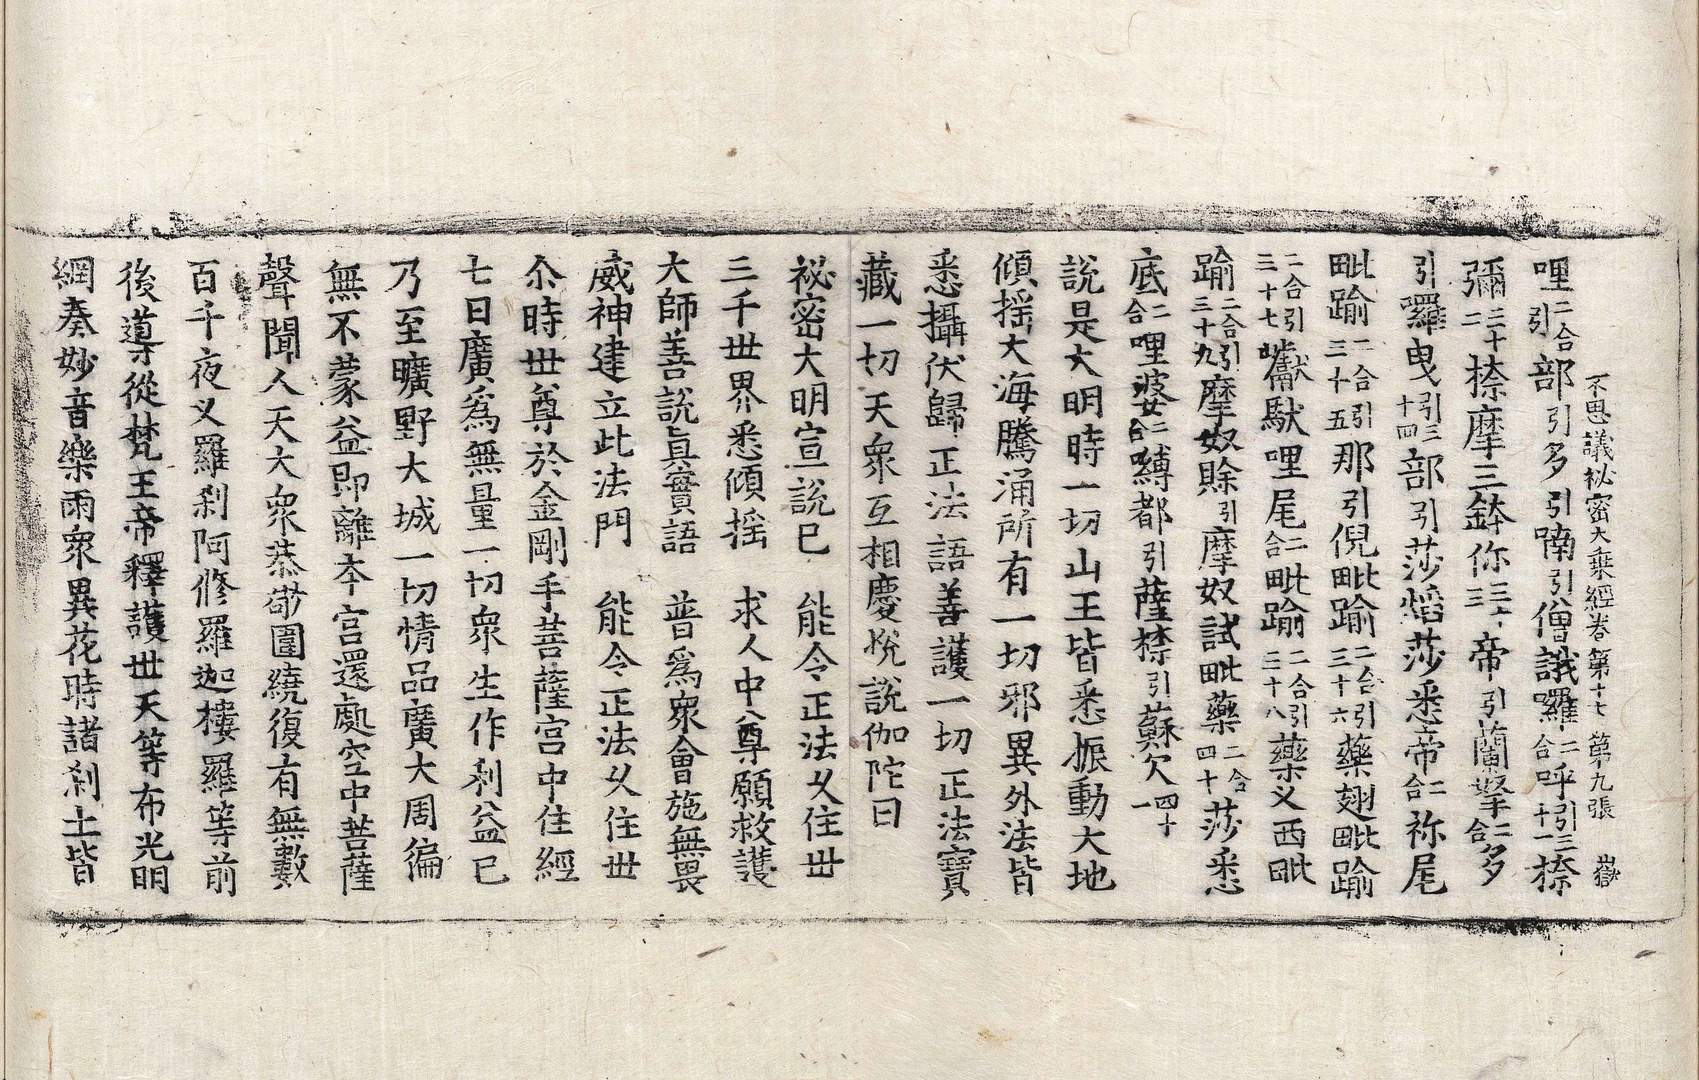 不思議祕密大乘經卷第十七 第九張 嶽
哩二合引部引多引喃引僧誐囉二合呼引三十一捺
彌三十二捺摩三鉢你三十三帝引蘭拏二合多
引囉曳引三十四部引莎焰莎悉帝二合祢尾
毗踰二合引三十五那引倪毗踰二合引三十六藥翅毗踰
二合引三十七馱哩尾二合毗踰二合引三十八藥叉西毗
踰二合引三十九摩奴賒引摩奴試毗藥二合四十莎悉
底二合哩婆二合嚩都引薩捺引蘇欠四十一
說是大明時一切山王皆悉振動大地
傾搖大海騰涌所有一切邪異外法皆
悉攝伏歸正法語善護一切正法寶
藏一切天衆互相慶恱說伽陀曰
祕密大明宣說已 能令正法久住世
三千世界悉傾搖 求人中尊願救護
大師善說眞實語 普爲衆會施無畏
威神建立此法門 能令正法久住世
尒時世尊於金剛手菩薩宮中住經
七日廣爲無量一切衆生作利益已
乃至曠野大城一切情品廣大周徧
無不蒙益即離本宮還處空中菩薩
聲聞人天大衆恭敬圍繞復有無數
百千夜叉羅刹阿修羅迦樓羅等前
後導從梵王帝釋護世天等布光明
網奏妙音樂雨衆異花時諸刹土皆